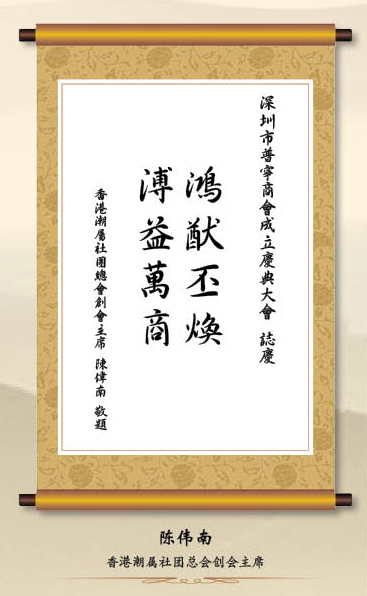 深圳市普寧商會成立慶典大會 誌慶
鴻猷丕煥
溥益萬商
香港潮屬社團總會創會主席 陳偉南 敬題
陈伟南
香港潮属社团总会创会主席